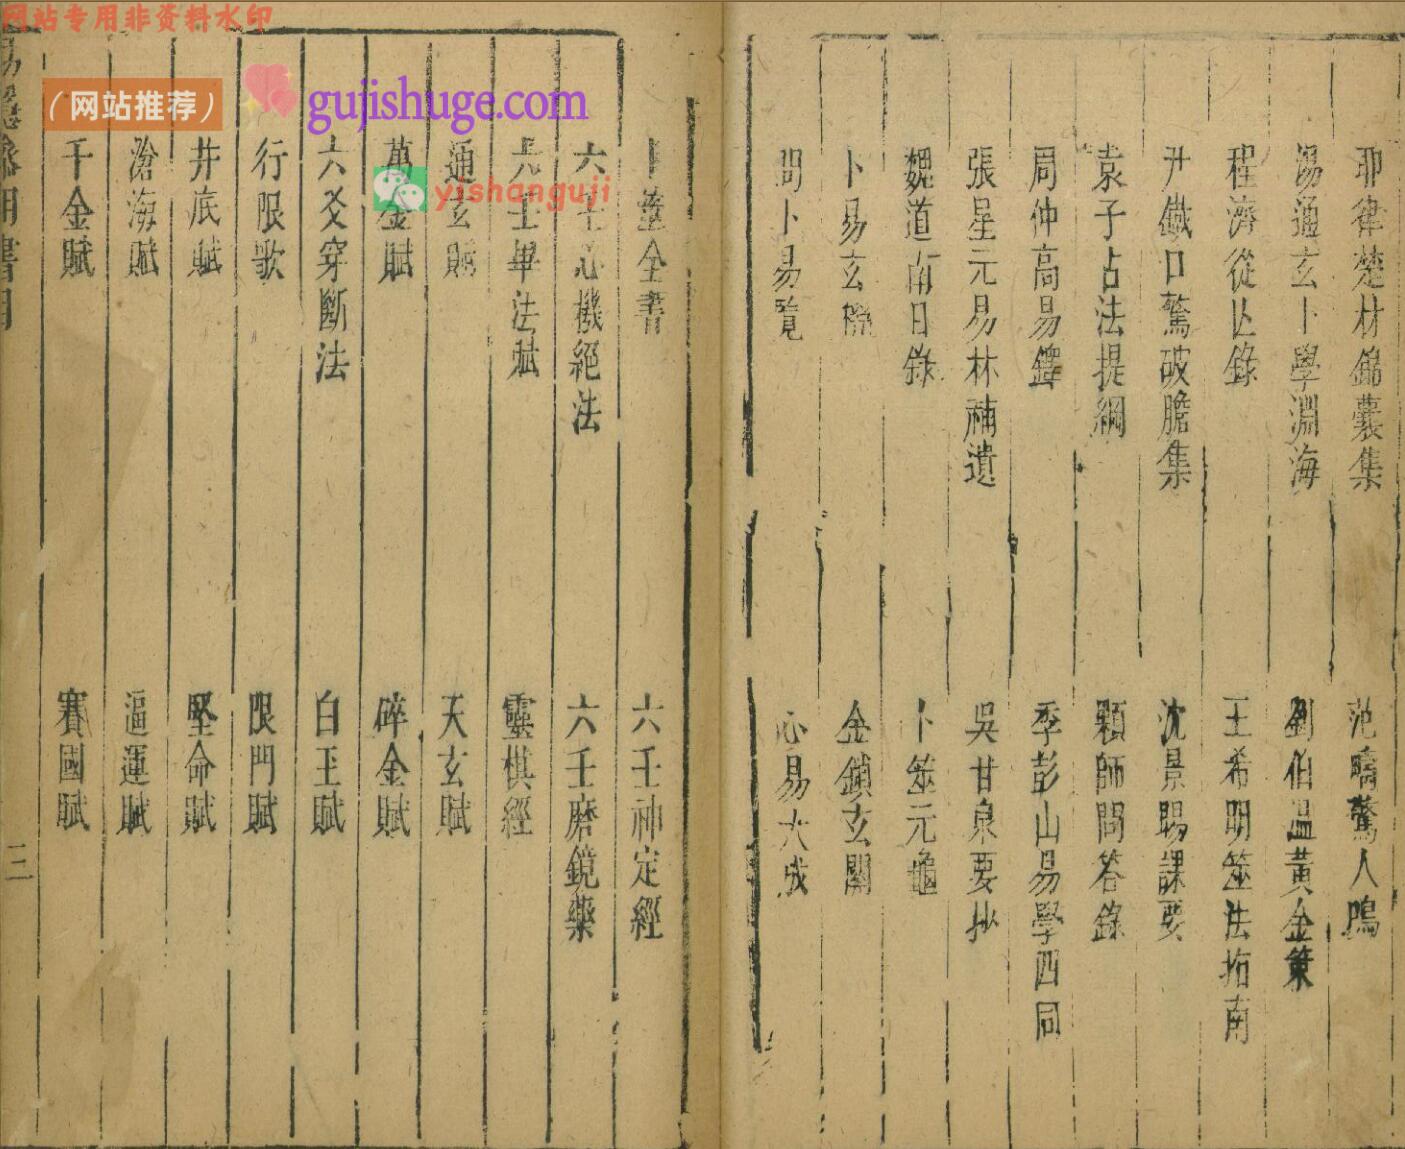 网站专用非资料水印
(网站推荐)
gujishuge.com
yishanguji
耶律楚材錦囊集
范疇驚人鳴
湯通玄卜學淵海
劉伯温黃金策
程濟從亾錄
王希明筮法指南
尹鐵口驚破膽集
沈景暘課要
袁子占法提綱
顆師問答錄
周仲高易鐸
季彭山易學四同
張星元易林補遺
吳甘泉要抄
魏道南日錄
卜筮元龜
卜易玄機
金鎖玄關
問卜易覽
心易大成
卜筮全書
六壬神定經
六壬心機絕法
六壬磨鏡藥
六壬畢法賦
靈棋經
通玄賦
天玄賦
萬金賦
碎金賦
六爻穿斷法
白玉賦
行限歌
限門賦
井底賦
堅命賦
滄海賦
逼運賦
千金賦
賽國賦
用書目
三